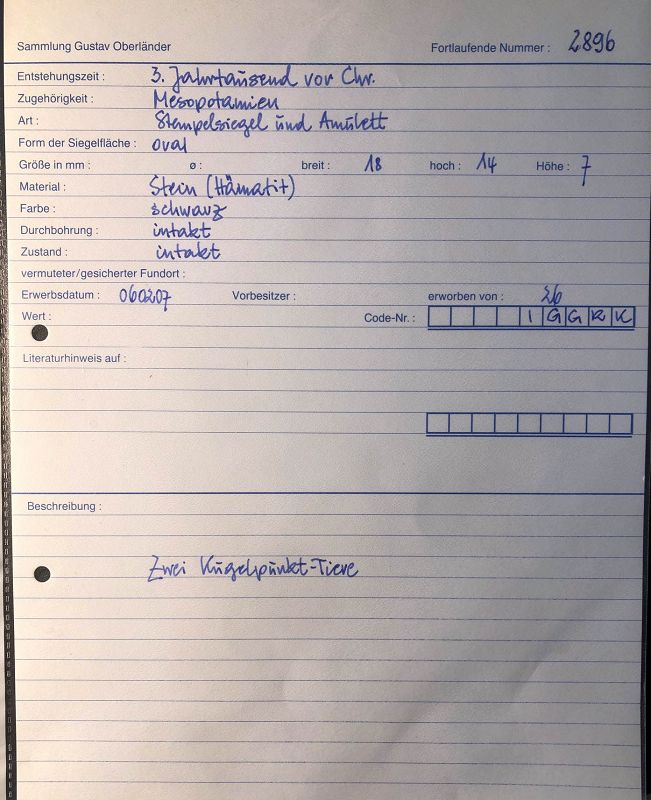 Sammlung Gustav Oberländer Fortlaufende Nummer : 2896
Entstehungszeit : 3. Jahrtausend vor Chr.
Zugehörigkeit : Mesopotamien
Art : Stempelsiegel und Amulett
Form der Siegelfläche : oval
Größe in mm : ø : breit : 18 hoch : 14 Höhe : 7
Material : Stein (Hämatit)
Farbe : schwarz
Durchbohrung : intakt
Zustand : intakt
vermuteter/gesicherter Fundort :
Erwerbsdatum : 060207 Vorbesitzer : erworben von : 26
Wert : Code-Nr. : I G G K K
Literaturhinweis auf :
Beschreibung :
Zwei Kugelpunkt-Tiere